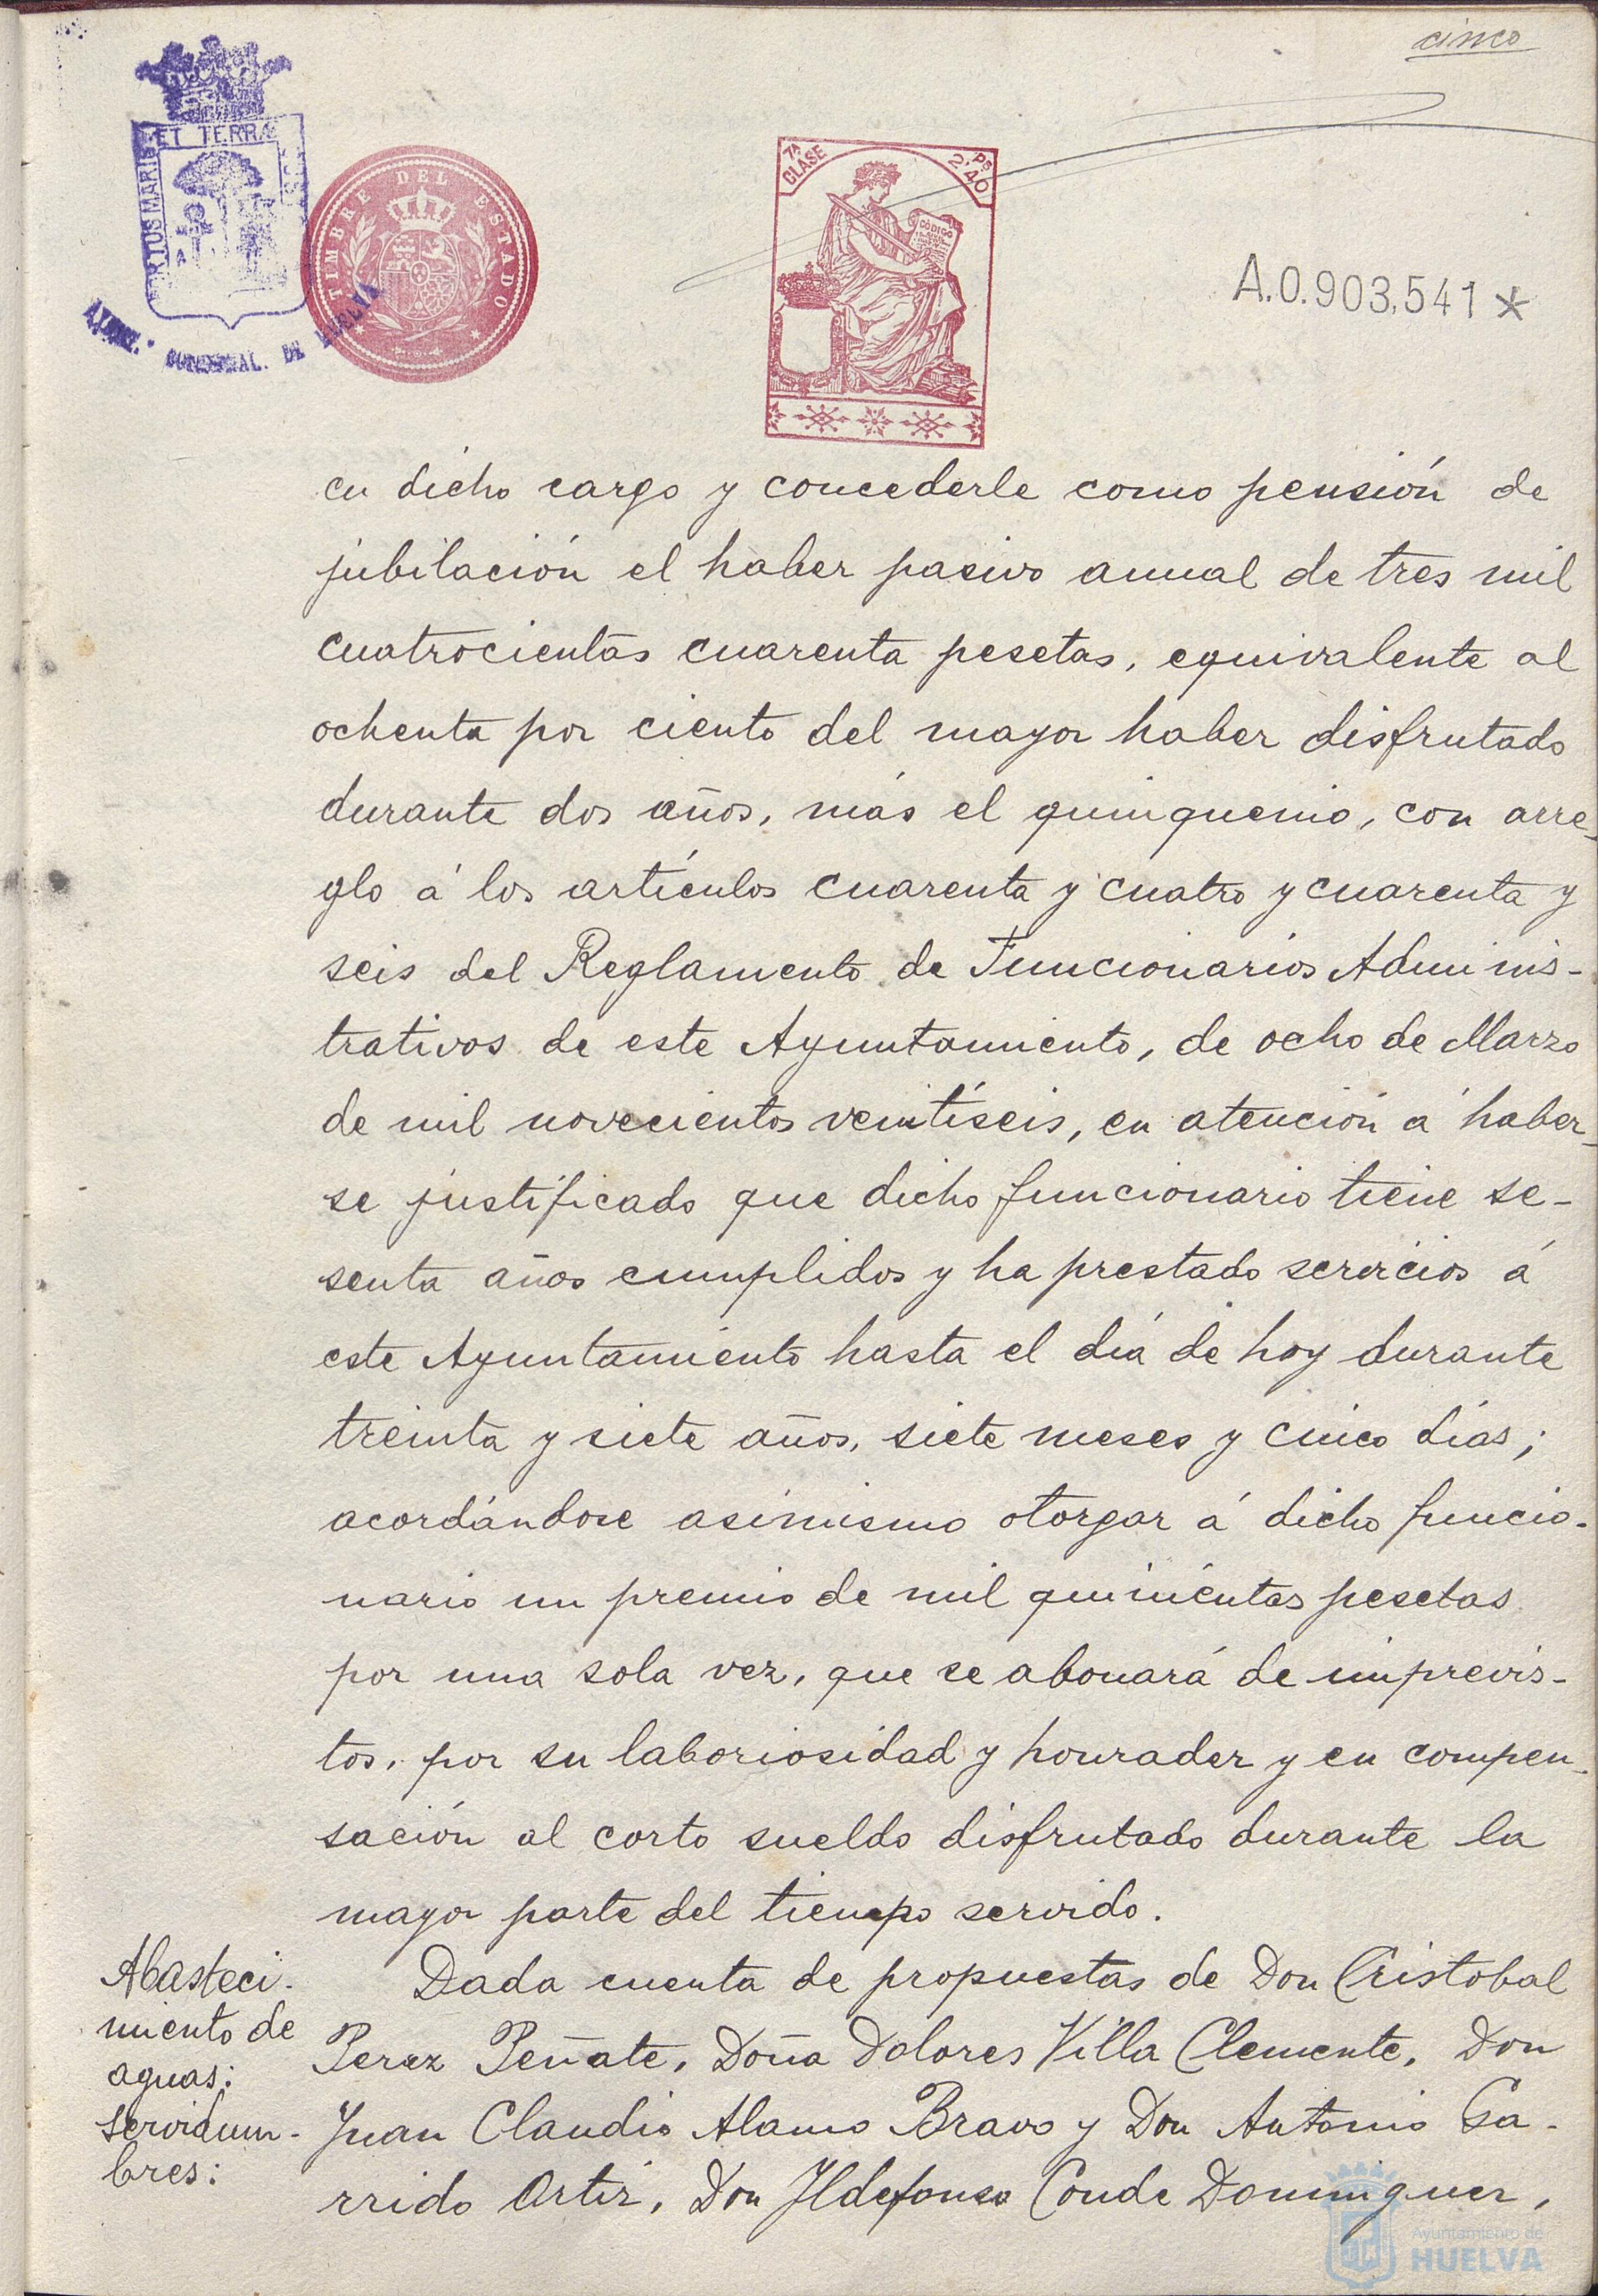 cinco
PORTUS MARIS ET TERRÆ CUS
TIMBRE DEL ESTADO
7ª CLASE
2.40 Ps
CODIGO
A.0.903,541*
DE HUELVA
en dicho cargo y concederle como pensión de
jubilación el haber pasivo anual de tres mil
cuatrocientas cuarenta pesetas, equivalente al
ochenta por ciento del mayor haber disfrutado
durante dos años, más el quinquenio, con arre-
glo á los artículos cuarenta y cuatro y cuarenta y
seis del Reglamento de Funcionarios Adminis-
trativos de este Ayuntamiento, de ocho de Marzo
de mil novecientos veintiseis, en atención á haber-
se justificado que dicho funcionario tiene se-
senta años cumplidos y ha prestado servicios á
este Ayuntamiento hasta el día de hoy durante
treinta y siete años, siete meses y cinco días;
acordándose asimismo otorgar á dicho funcio-
nario un premio de mil quinientas pesetas
por una sola vez, que se abonará de imprevis-
tos, por su laboriosidad y honradez y en compen-
sación al corto sueldo disfrutado durante la
mayor parte del tiempo servido.
Abasteci-
miento de
aguas:
servidum-
bres:
Dada cuenta de propuestas de Don Cristobal
Perez Peñate, Doña Dolores Villa Clemente, Don
Juan Claudio Alamo Bravo y Don Antonio Ga-
rrido Ortiz, Don Ildefonso Conde Dominguez,
Ayuntamiento de
HUELVA